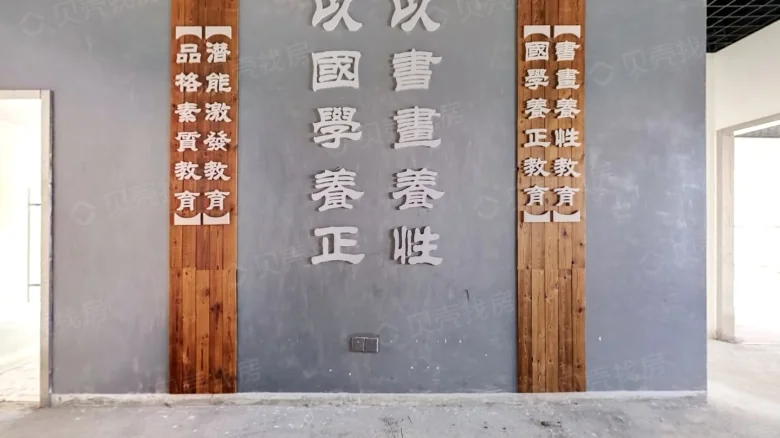 書畫養性教育
國學養正教育
以書畫養性
以國學養正
潛能激發教育
品格素質教育
贝壳找房